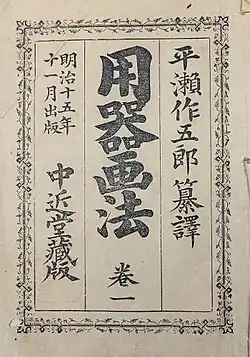 平瀬作五郎纂譯
用器画法
巻一
明治十五年
十一月出版
中近堂蔵版